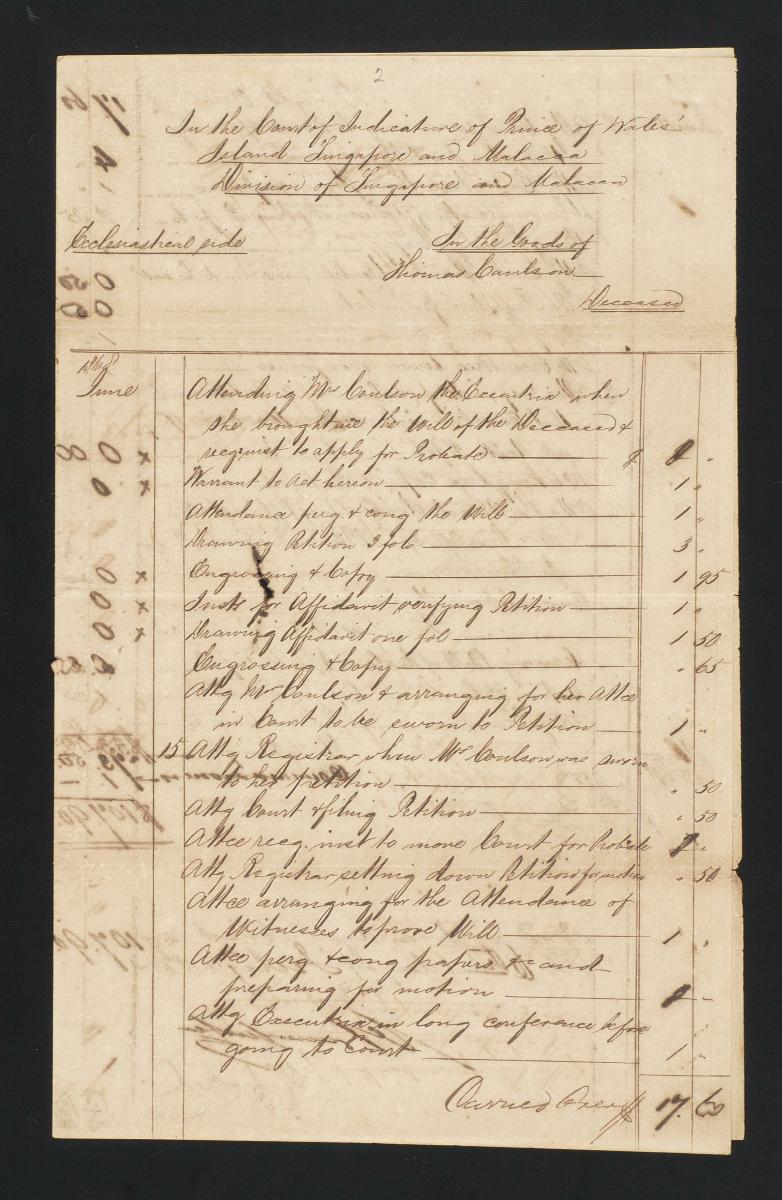 2
In the Court of Judicature of Prince of Wales'
Island Singapore and Malacca
Division of Singapore and Malacca
Ecclesiastical side
In the Goods of
Thomas Coulson
Deceased
1868
June
Attending Mrs Coulson the Executrix when
she brought me the Will of the Deceased &
reqg inst to apply for Probate $
Warrant to act hereon 1 "
Attendance perg. & cong. the Will 1 "
Drawing Petition 3 fols 3 "
x Engrossing & Copy 1 95
x Insts for Affidavit verifying Petition 1 "
x Drawing Affidavit one fol 1 50
Engrossing & Copy " 65
Attg Mrs Coulson & arranging for her Attce
in Court to be sworn to Petition 1 "
15 Attg Registrar when Mrs Coulson was sworn
to her petition " 50
Attg Court & filing Petition " 50
Attce recg. inst to move Court for Probate
Attg Registrar setting down Petition for motion " 50
Attce arranging for the Attendance of
Witnesses to prove Will 1 "
Attce perg. & cong papers &c and
preparing for motion
Attg Executrix in long conference before
going to Court 1 "
Carried Over $ 17. 60